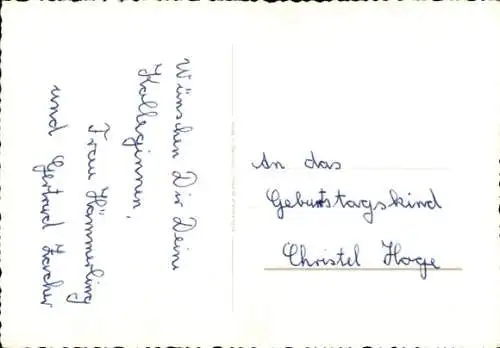 Wünschen Dir Deine
Kolleginnen,
Frau Hämmerling
und Gertrud Larcher
An das
Geburtstagskind
Christel Hoge